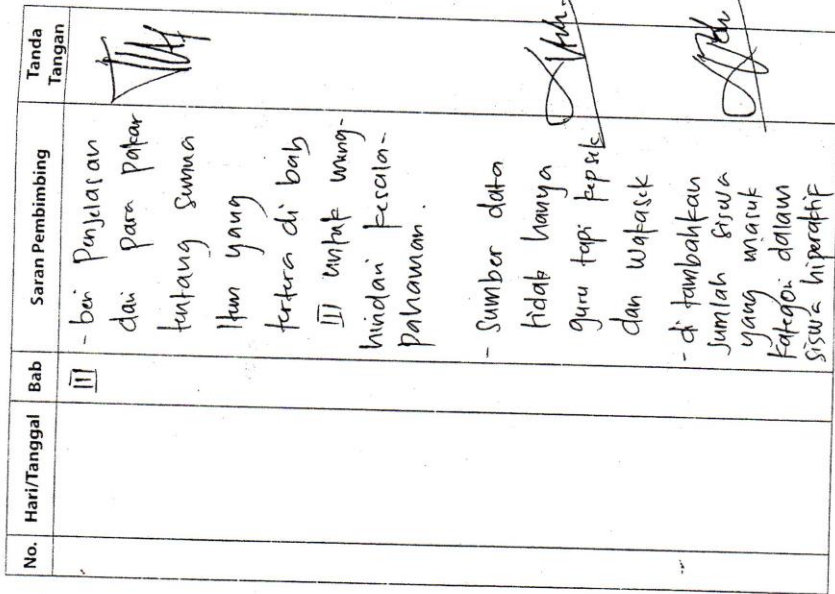 No. Hari/Tanggal Bab Saran Pembimbing Tanda
Tangan
III - beri Penjelasan
dari para pakar
tentang semua
Item yang
tertera di bab
III untuk meng-
hindari kesala-
pahaman.
- Sumber data
tidak hanya
guru tapi kepsek
dan Wakasek
- di tambahkan
jumlah siswa
yang masuk
kategori dalam
siswa hiperaktif